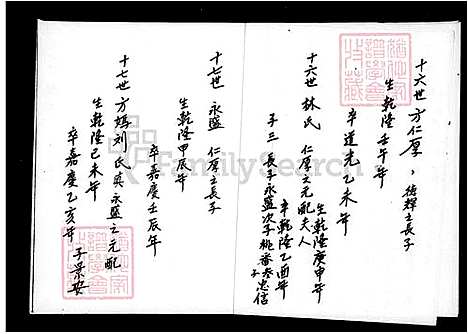 十六世 方仁厚,德輝之長子
生乾隆壬午年
卒道光乙未年
十六世 林氏 仁厚之元配夫人
生乾隆庚申年
卒乾隆乙酉年
子三 長子永盛次子桃番叁子忠信
十七世 永盛 仁厚之長子
生乾隆甲辰年
卒嘉慶壬辰年
十七世 方媽刘氏 永盛之元配
生乾隆己未年
卒嘉慶乙亥年 子景安
FamilySearch